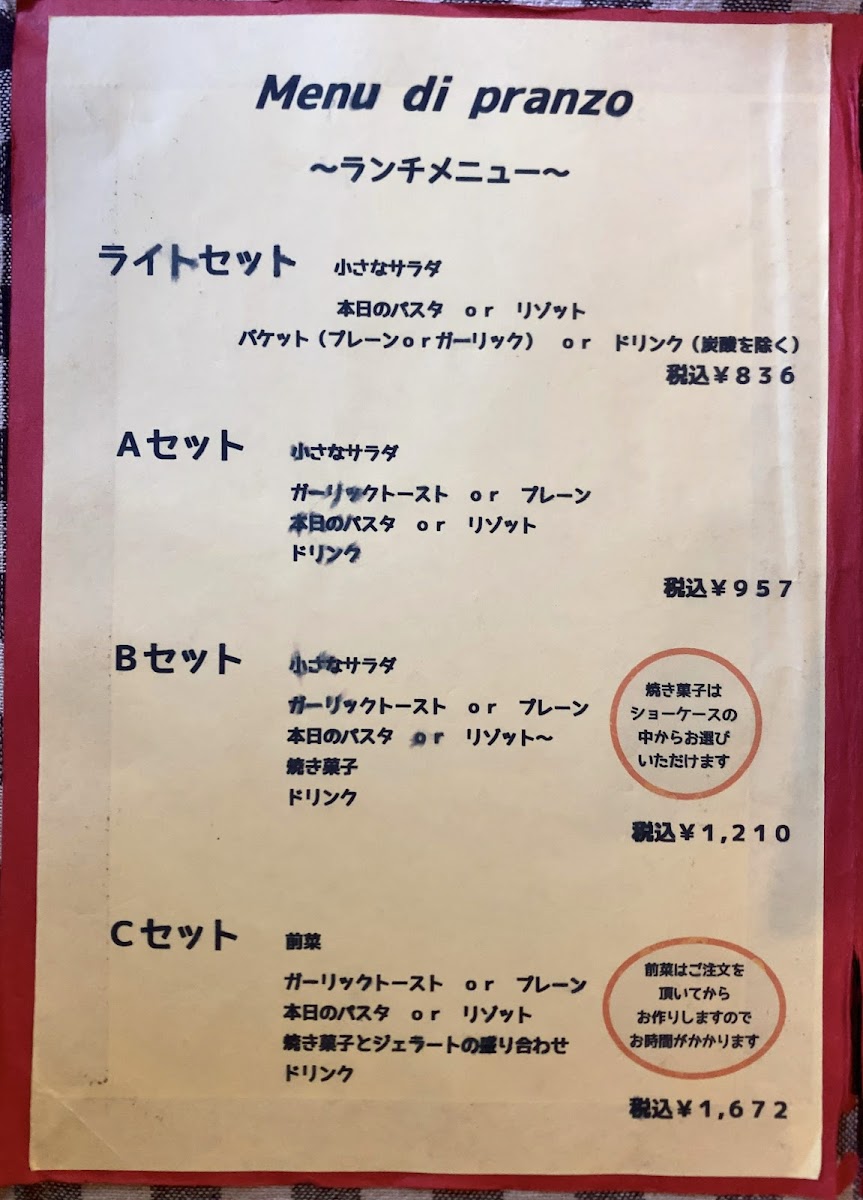 Menu di pranzo
～ランチメニュー～
ライトセット 小さなサラダ
本日のパスタ or リゾット
バケット（プレーンorガーリック） or ドリンク（炭酸を除く）
税込￥８３６
Aセット 小さなサラダ
ガーリックトースト or プレーン
本日のパスタ or リゾット
ドリンク
税込￥９５７
Bセット 小さなサラダ
ガーリックトースト or プレーン
本日のパスタ or リゾット～
焼き菓子
ドリンク
焼き菓子は
ショーケースの
中からお選び
いただけます
税込￥１,２１０
Cセット 前菜
ガーリックトースト or プレーン
本日のパスタ or リゾット
焼き菓子とジェラートの盛り合わせ
ドリンク
前菜はご注文を
頂いてから
お作りしますので
お時間がかかります
税込￥１,６７２